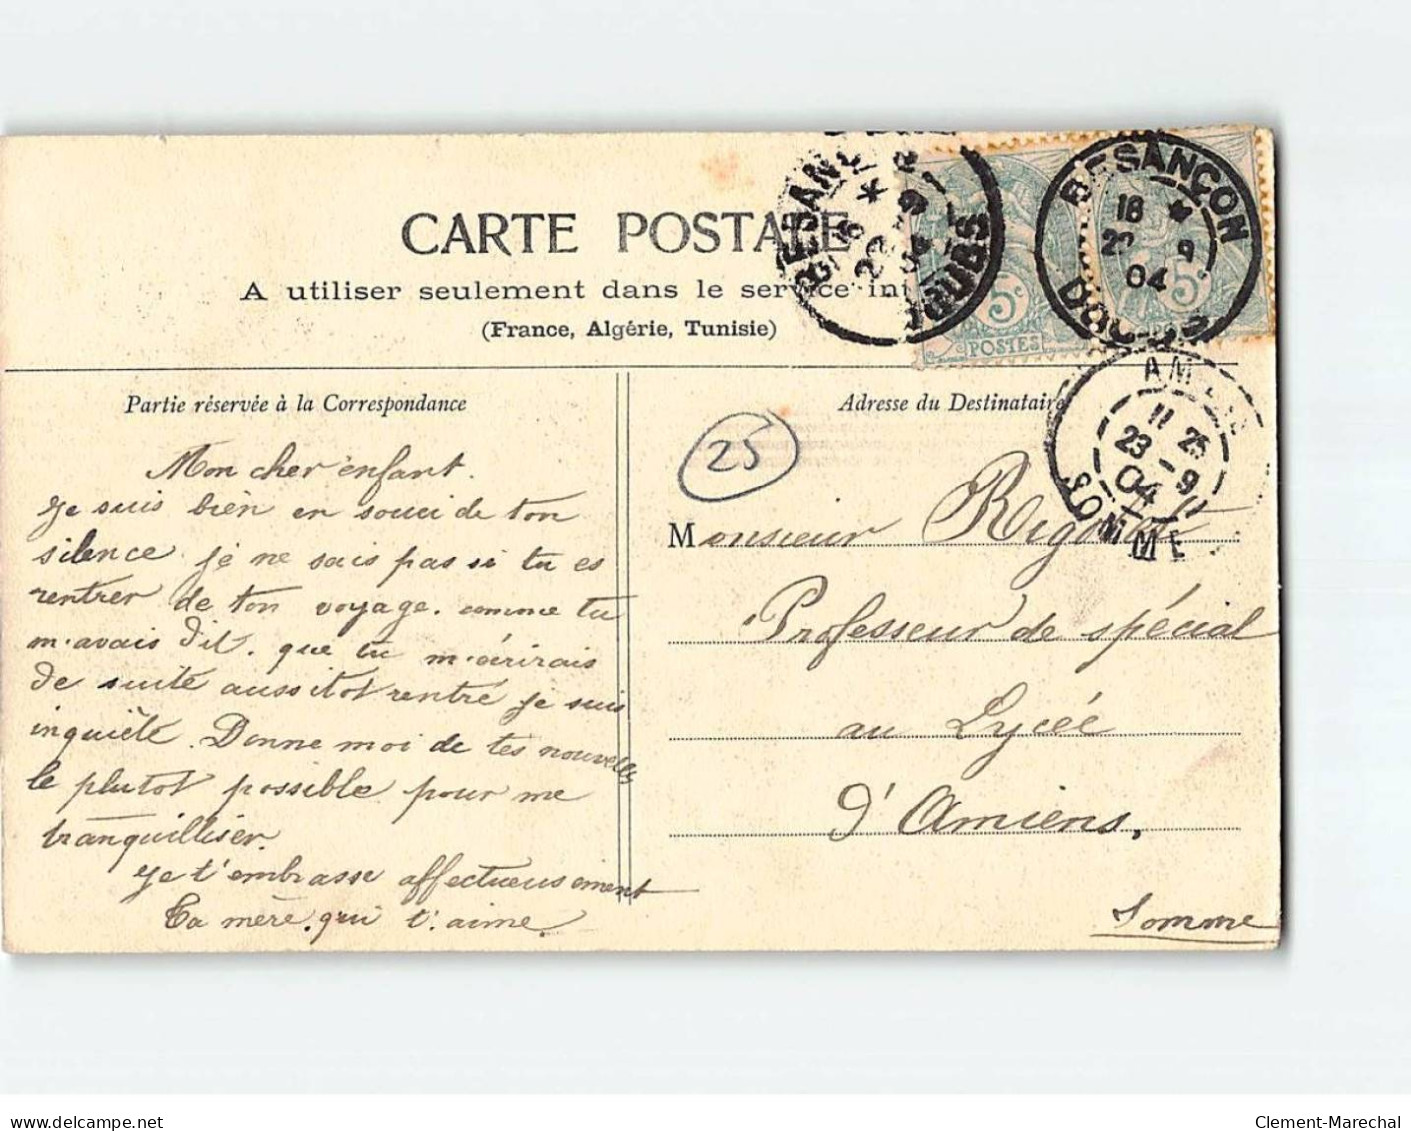 CARTE POSTALE
A utiliser seulement dans le service
(France, Algérie, Tunisie)
BESANÇON
DOUBS
5c
POSTES
BESANÇON
18
9
04
DOUBS
5c
11 25
23 - 9
04
SOMME
Partie réservée à la Correspondance
Adresse du Destinataire
25
Mon cher enfant.
Je suis bien en souci de ton
silence je ne sais pas si tu es
rentrer de ton voyage. comme tu
m'avais dit. que tu m'écrirais
de suite aussitot rentré je suis
inquiète. Donne moi de tes nouvelles
le plutot possible pour me
tranquilliser.
Je t'embrasse affectueusement
Ta mère. qui t'aime.
Monsieur
Professeur de spécial
au Lycée
d'Amiens,
Somme
delcampe.net
Clement-Marechal